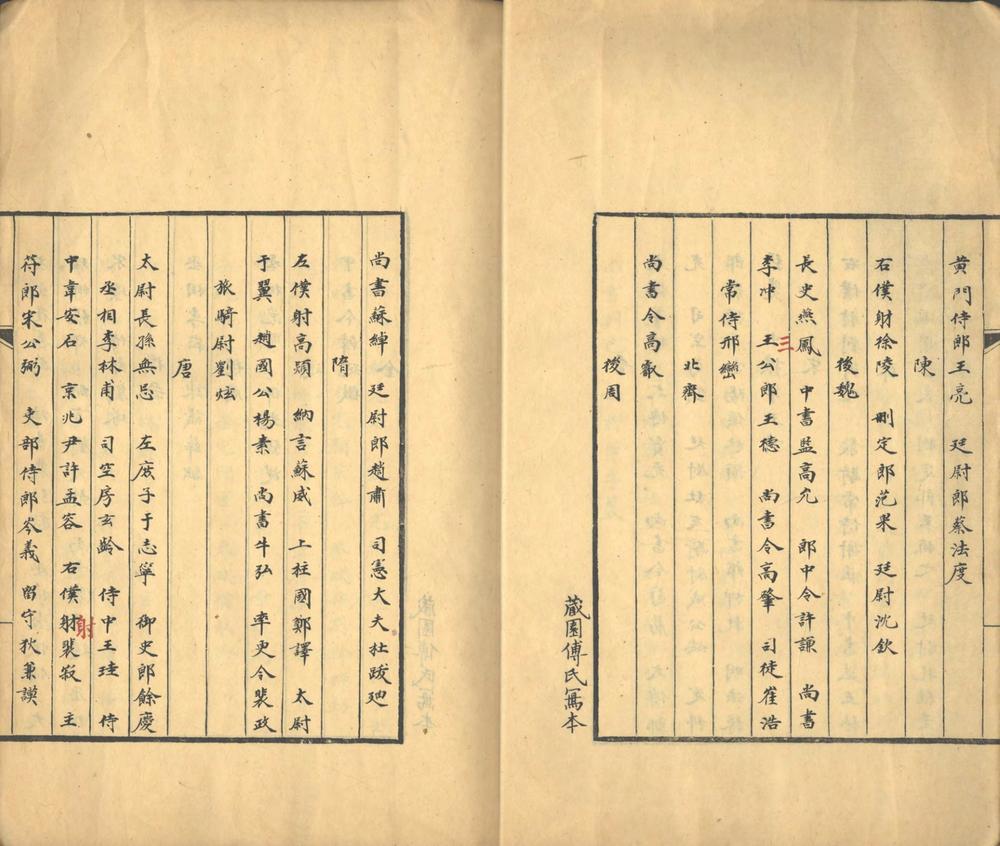 黃門侍郎王亮　廷尉郎蔡法度
陳
右僕射徐陵　刪定郎范杲　廷尉沈欽
後魏
長史燕鳳　中書監高允　郎中令許謙　尚書
李冲　三王公郎王德　尚書令高肇　司徒崔浩
常侍邢巒
北齊
尚書令高叡
後周
藏園傅氏寫本
尚書蘇綽　廷尉郎趙肅　司憲大夫杜跋迆
隋
左僕射高熲　納言蘇威　上柱國鄭譯　太尉
于翼　趙國公楊素　尚書牛弘　率更令裴政
旅騎尉劉炫
唐
太尉長孫無忌　左庶子于志寧　御史郎餘慶
丞相李林甫　司空房玄齡　侍中王珪　侍
中韋安石　京兆尹許孟容　右僕射裴寂　主
符郎宋公弼　吏部侍郎岑義　留守狄兼謨